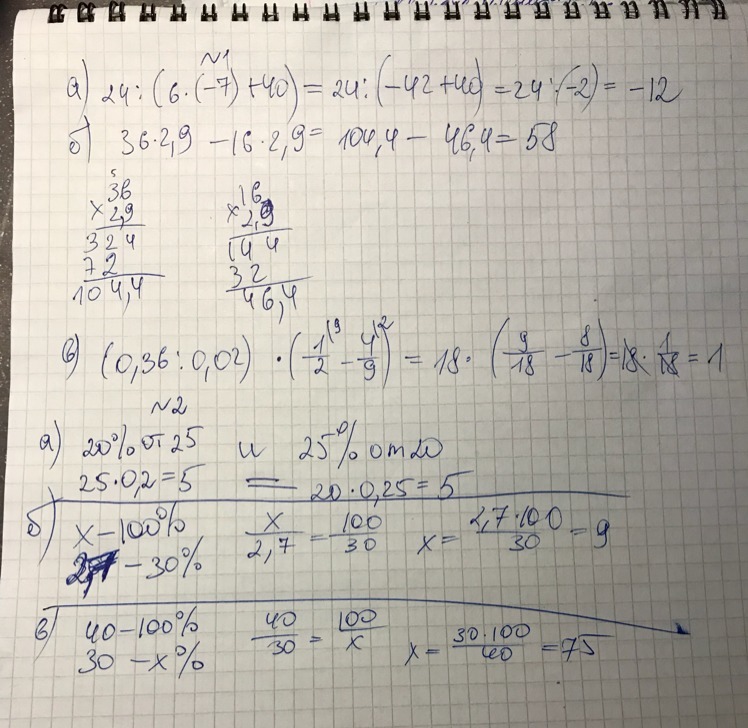 №1
а) 24:(6·(-7)+40)=24:(-42+40)=24:(-2)=-12
б) 36·2,9-16·2,9=104,4-46,4=58
5
36 16
×2,9 ×2,9
324 144
72 32
104,4 46,4
в) (0,36:0,02)·(1/2\9-4/9\2)=18·(9/18-8/18)=18·1/18=1
№2
а) 20% от 25 и 25% от 20
25·0,2=5 = 20·0,25=5
б) x-100% x/2,7=100/30 x=2,7·100/30=9
2,7-30%
в) 40-100% 40/30=100/x x=30·100/40=75
30-x%